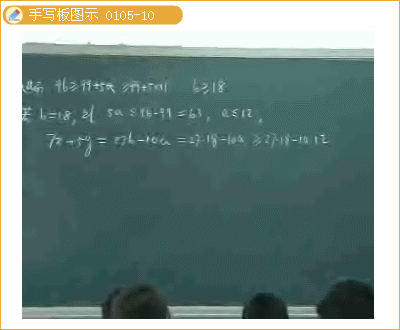 手写板图示 0105-10
9b≥99+5a ≥99+5×1 b≥18
若 b=18, 则 5a≤9b-99=63, a≤12,
7x+5y=27b-10a=27·18-10a≥27·18-10·12